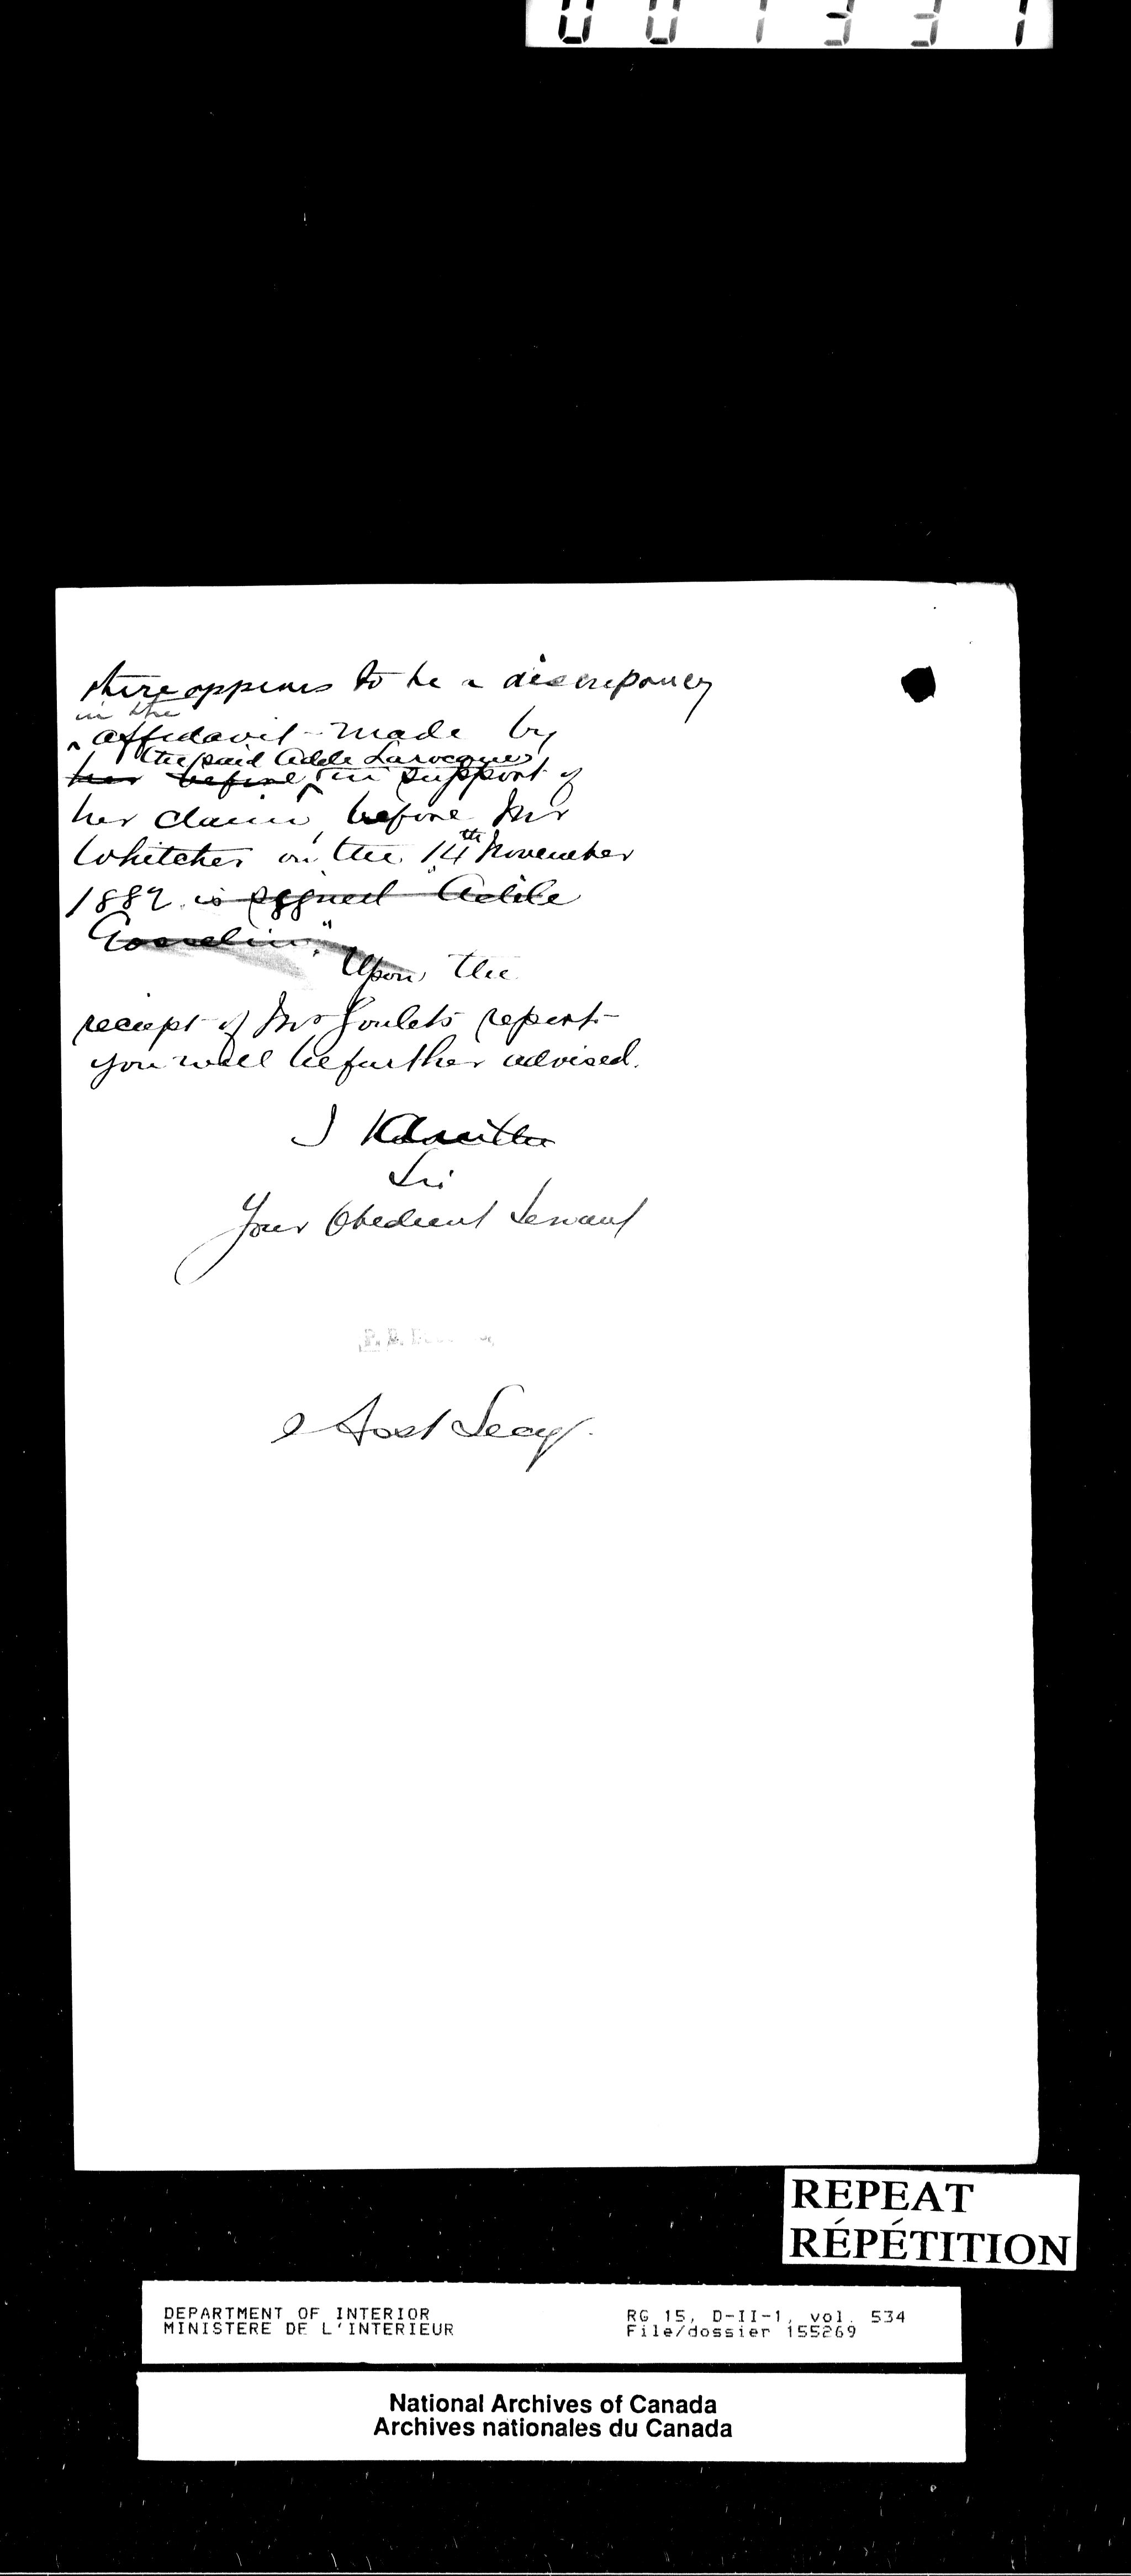 001331
there appears to be a discrepancy
in the
affidavit made by
the said Adele Larocque
her before in support of
her claim, before Mr
Whitcher on the 14th November
1889 is signed "Adele
Gosselin."
Upon the
receipt of Mr Goulets report
you will be further advised.
I
Sir
Your Obedient Servant
P. B.
Asst Secy.
REPEAT
RÉPÉTITION
DEPARTMENT OF INTERIOR
MINISTERE DE L'INTERIEUR
RG 15, D-II-1, vol. 534
File/dossier 155269
National Archives of Canada
Archives nationales du Canada